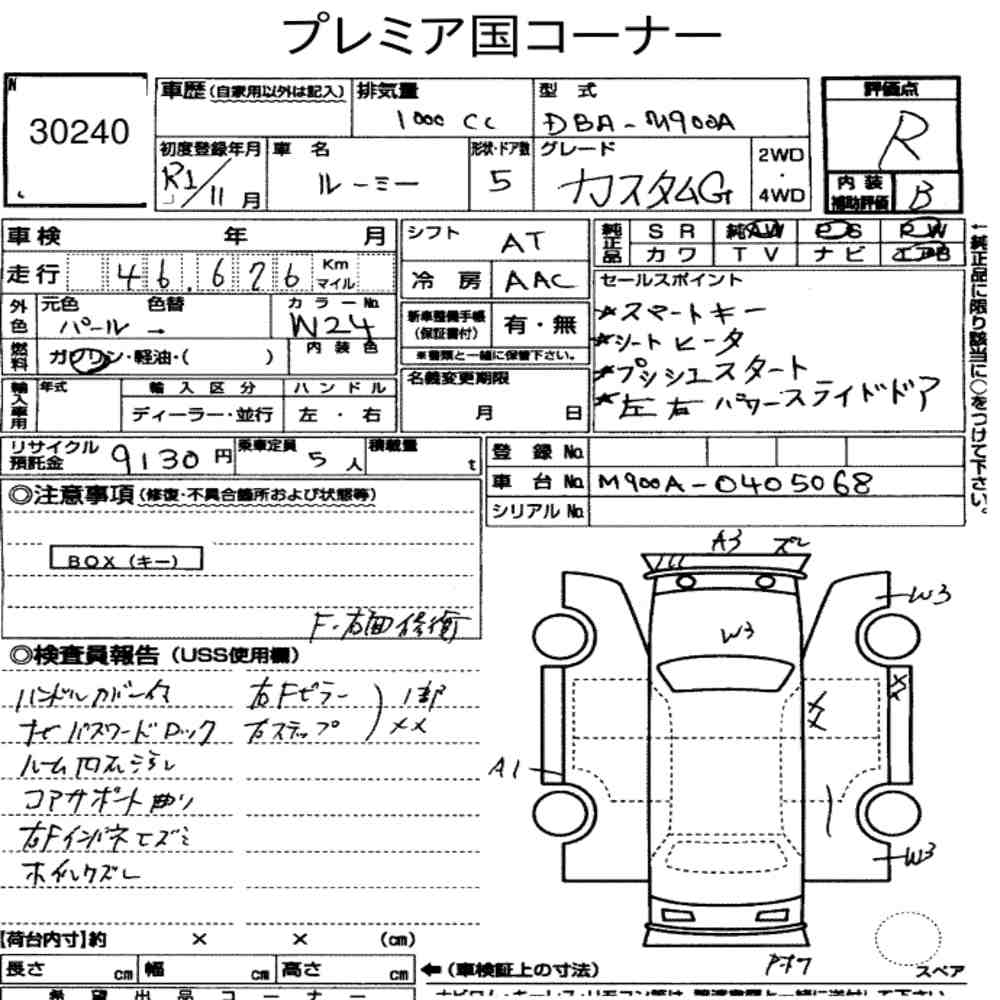 プレミア国コーナー
N
30240
車歴 (自家用以外は記入)
排気量
1000 cc
型 式
DBA-M900A
評価点
R
内装補助評価
B
初度登録年月
R1/11月
車 名
ルーミー
形状・ドア数
5
グレード
カスタムG
2WD
・
4WD
車検 年 月
走行 46.676 Km マイル
外色
元色
パール →
色替
カラーNo.
W24
燃料
ガソリン・軽油・( )
内装色
輸入車用
年式
輸入区分
ディーラー・並行
ハンドル
左・右
シフト
AT
冷房
AAC
新車整備手帳
(保証書付)
有・無
※書類と一緒に保管下さい。
名義変更期限
月 日
純正品
SR 純AW PS PW
カワ TV ナビ エアB
セールスポイント
*スマートキー
*シートヒータ
*プッシュスタート
*左右パワースライドドア
←純正品に限り該当に○をつけて下さい。
リサイクル預託金
9130円
乗車定員
5人
積載量
t
登録No.
車台No. M900A-0405068
シリアルNo.
◎注意事項 (修復・不具合箇所および状態等)
BOX (キー)
F・右面修復
◎検査員報告 (USS使用欄)
ハンドルカバーイタ
ナビパスワードロック
ルーム
コアサポート曲り
右Fインパネ
右Fピラー
右ステップ
1部
××
A3 ズレ
W3
W3
A1
W3
スペア
【荷台内寸】約 × × (cm)
長さ cm 幅 cm 高さ cm
←(車検証上の寸法)
希望出品コーナー